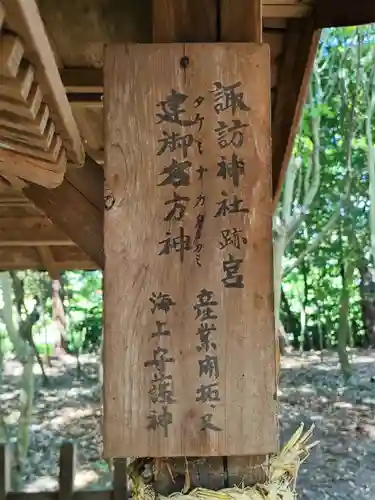 諏訪神社跡宮
産業開拓又
建御名方神
タケミナカタノカミ
海上守護神